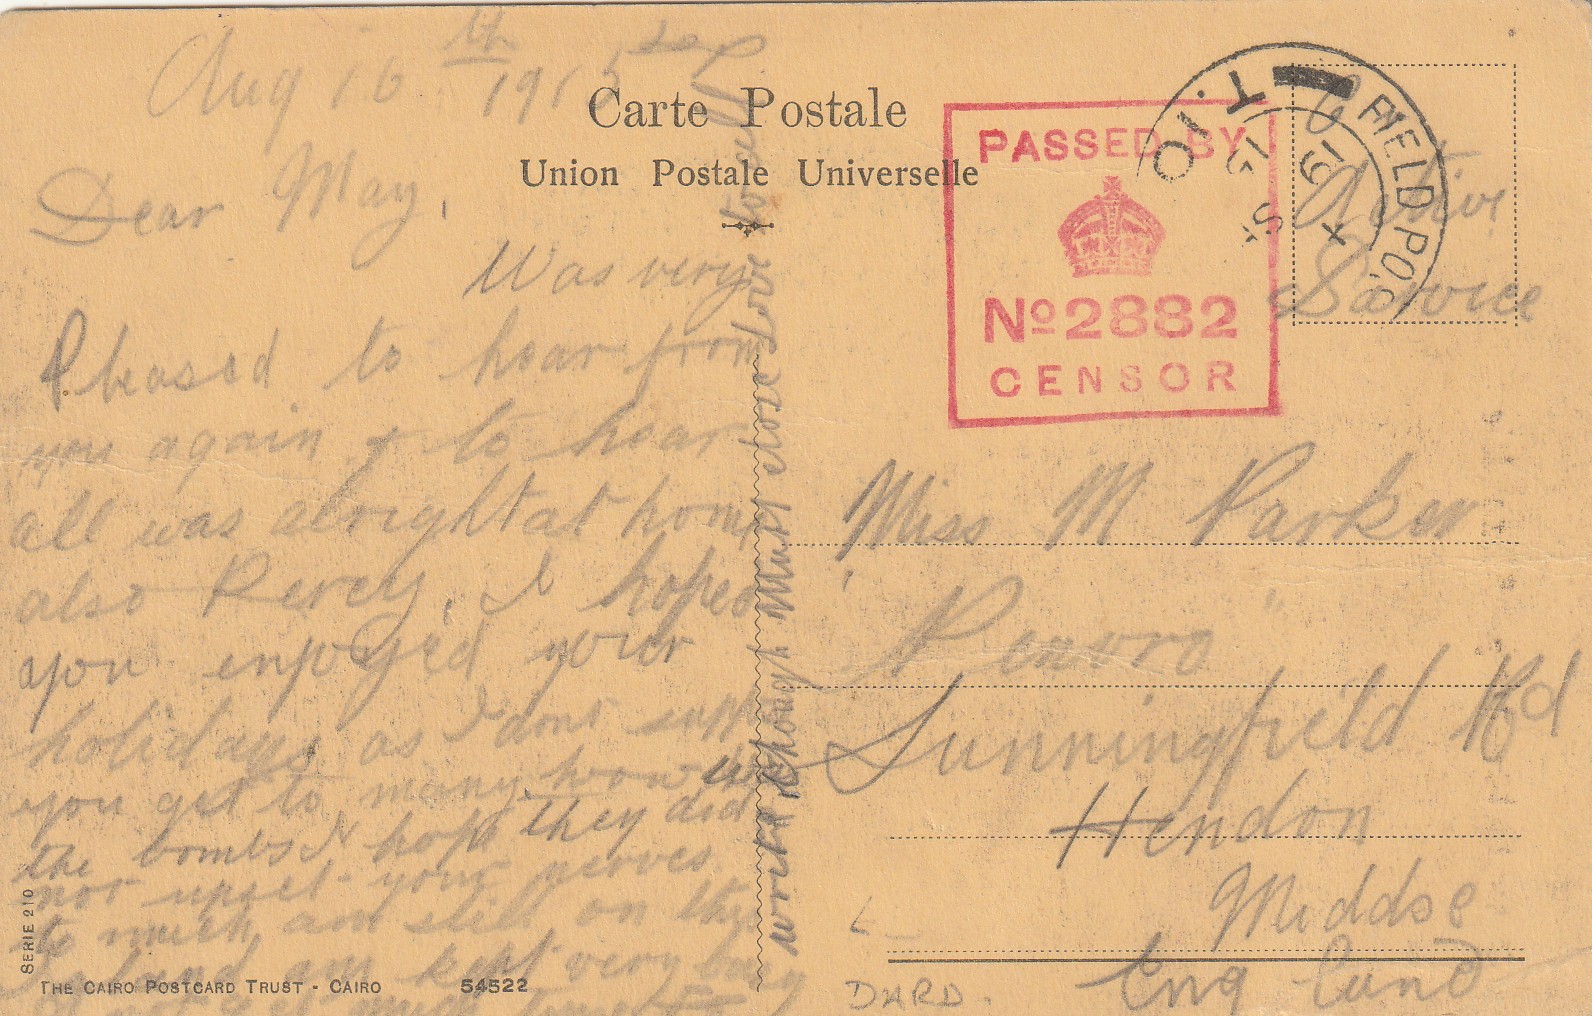 Aug 16th 1915
Carte Postale
Union Postale Universelle
Dear May,
Was very
Pleased to hear from
you again & to hear
all was alright at home
also Percy, I hoped
you enjoyed your
holidays as I dont supp
you get to many,
the bombs I hope they did
not upset your nerves
to much, am still on the
Island am kept very busy
not get much time to
write though must close Love to all
PASSED BY
No 2882
CENSOR
FIELD POS
T.10
Active
Service
Miss M Parker
Sunningfield Rd
Hendon
Middse
England
SERIE 210
THE CAIRO POSTCARD TRUST - CAIRO
54522